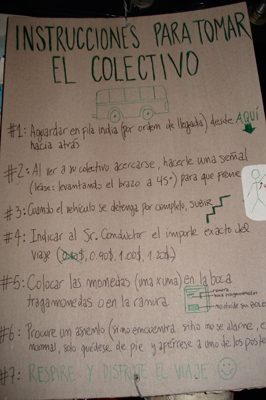 INSTRUCCIONES PARA TOMAR
EL COLECTIVO
#1: Aguardar en fila india (por orden de llegada) desde AQUÍ
hacia atrás
#2: Al ver a su colectivo acercarse, hacerle una señal
(léase: levantando el brazo a 45°) para que
#3: Cuando el vehículo se detenga por completo, SUBIR
#4: Indicar al Sr. Conductor el importe exacto del
viaje (0.80$, 0.90$, 1.00$, 1.20$)
#5: Colocar las monedas (una x una) en la boca
tragamonedas o en la ranura
ranura
boca tragamonedas
no olvide su BOLE
#6: Procure un asiento (si no encuentra sitio no se alarme, e
normal, solo quédese de pie y aférrese a uno de los poste
#7: RESPIRE Y DISFRUTE EL VIAJE